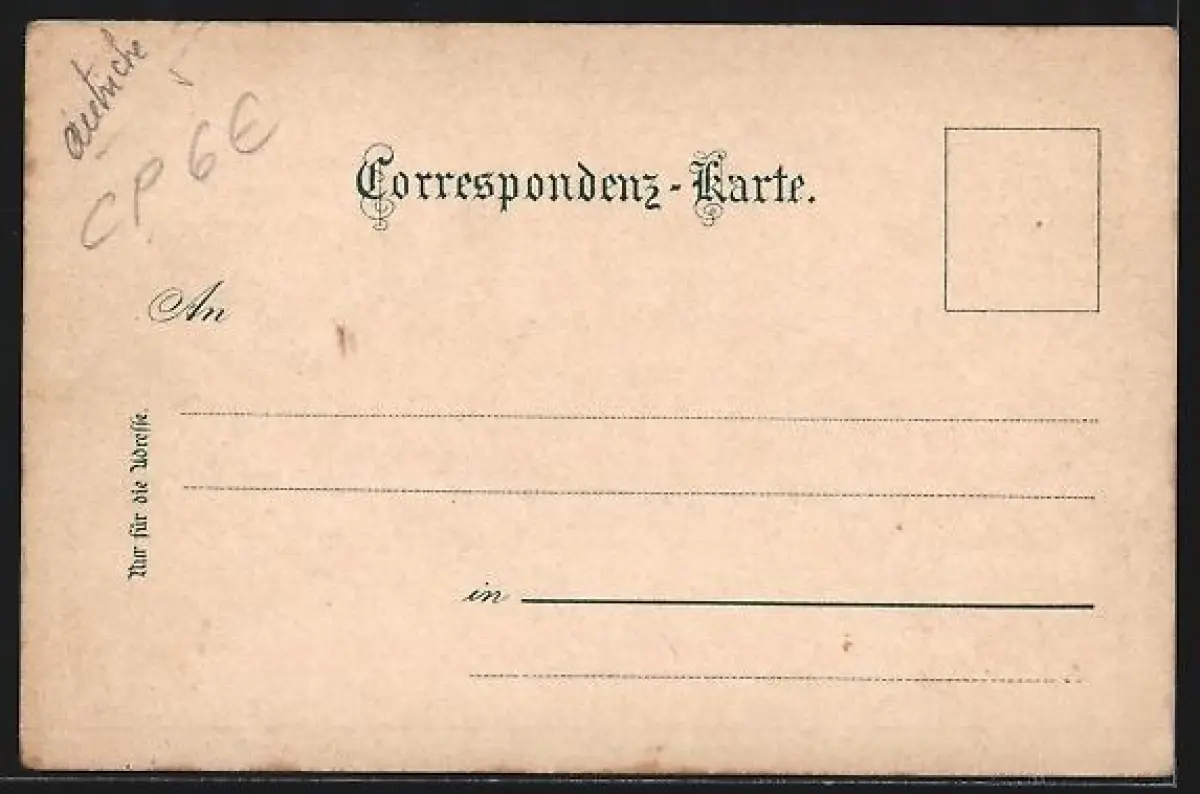 autriche
CP 6 €
Correspondenz-Karte.
An
Nur für die Adresse.
in